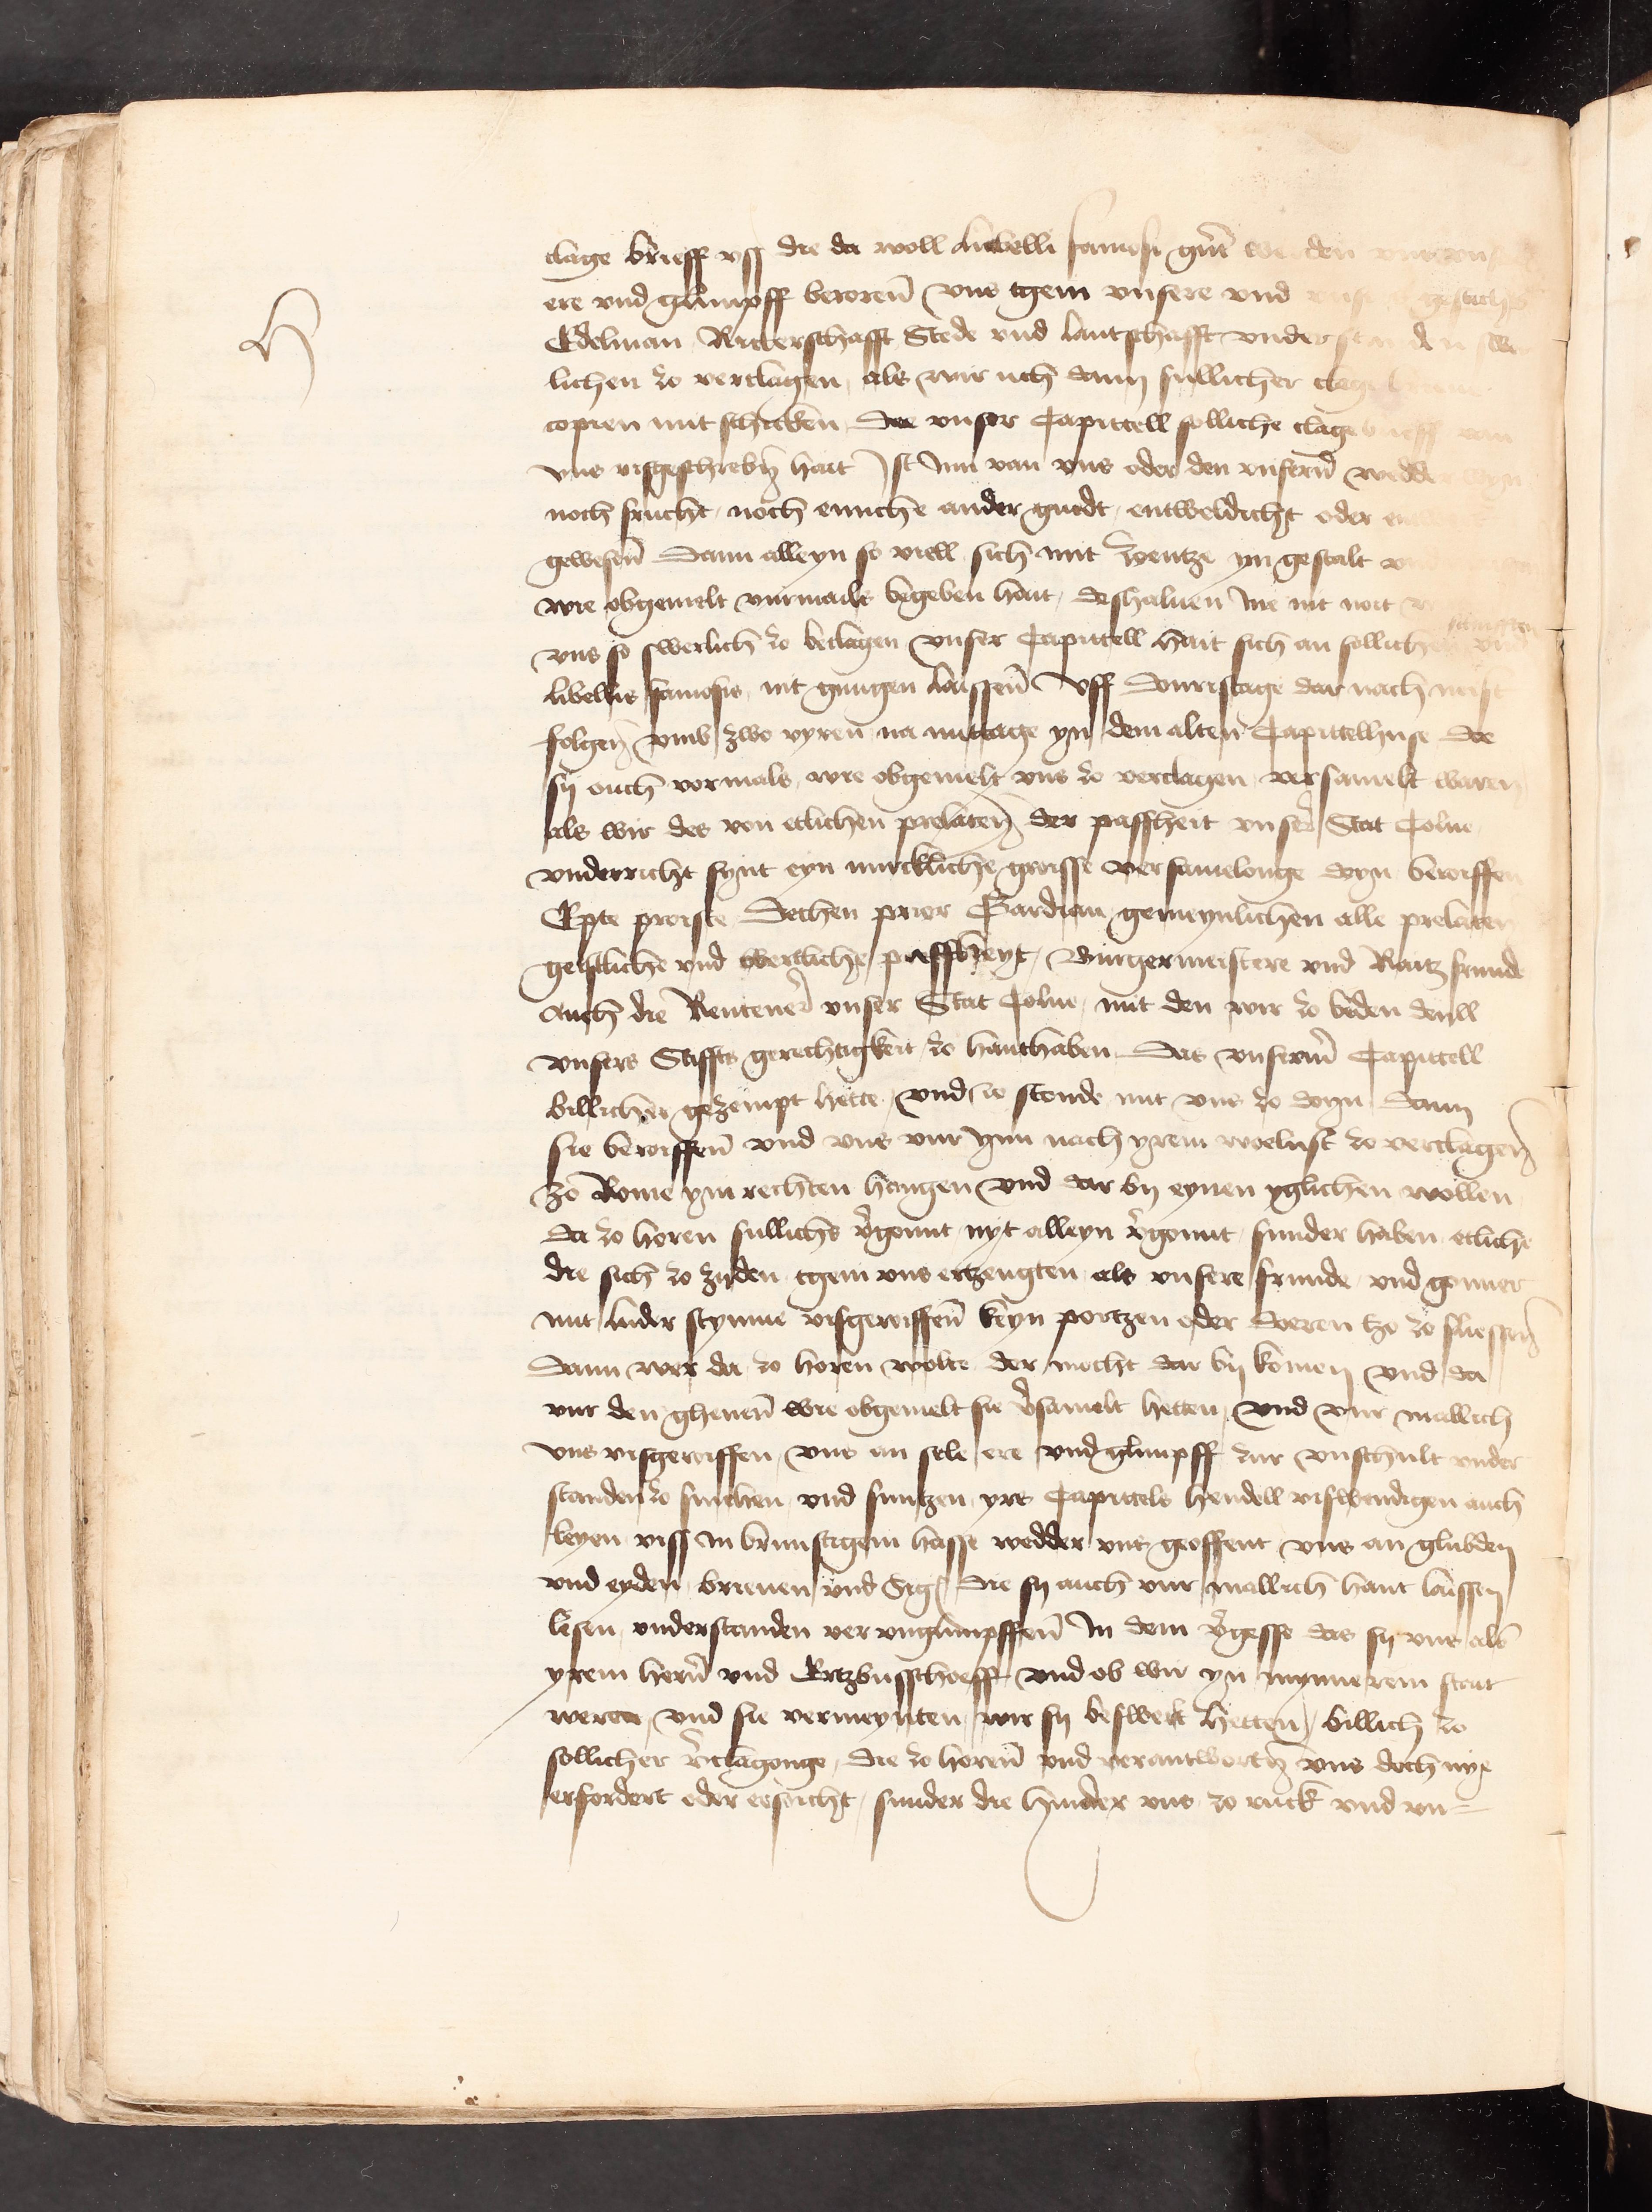 clage brieff uss die da woll libelli famosi gnt werden
ere und glimpff beroren uns tgein unsere und
Edelman Ritterschafft Stede und lantschafft understanden swer
lichen zo verclagen, als wir uch dann sullicher clage
copien mit schicken Doe unser Capittell solliche clage brieff van
uns ussgeschrebn hait Ist Inn van uns oder den unsern wedder wyn
noch frucht noch eniche ander gudt, entweldicht oder
gewesen Dann alleyn so viell sich mit Zontze yn gestalt
wie obgemelt vurmails begeben hait, deshaluen Ine nit noit
uns so swerlich zo beclagen unser Capittell hait sich an sollichen
libellis famosis nit gnugen laissen Uff Donrstage dar nach neist
folgen umb zwo uyren na mittage yn dem alten Capittelhuse Doe
sy ouch vormals, wie obgemelt uns zo verclagen versamelt waren
als wir des von etlichen prelaten der paffheit unser Stat Colne
underricht synt eyn mirckliche groisse versamelonge doyn beroiffen
Epte proiste Dechen prior Gardian gemeynlichen alle prelaten
geistliche und wertliche paffheyt, Burgermeistere und Raitz frunde
Auch die Rentener unser Stat Colne mit den wir zo beden deyll
unsers Stiffts gerechtigkeit zo hanthaben Das unserm Capittell
billicher gezempt hette, und ie stonde mit uns zo doyn Dann
sie beroiffen und uns vur ynn nach yrem woelust zo verclagen
zo Rome ym rechten hangen und dar by eynen yglichen wollen
da zo horen sullichs vergonnt nyt alleyn vergonnt sunder haben etliche
die sich zo zyden tgein uns ertzeugten als unsere frunde und gonner
mit luder stymme ussgeroiffen keyn portzen oder doeren tzo zo sliessen
Dann wer da zo horen wolte der mocht dar by komen und da
vur den ghenen wie obgemelt sie versamelt hetten, und vur mallich
uns ussgeroiffen, uns an sele ere und glimpff zur unschult under
standen zo smehen und suntzen yrs Capittels hendell usswendigen auch
leyen uss In brunstigem hasse wedder uns geoffent uns an glubden
und eyden brieuen und Sig Die sy auch vur mallich hant laissen
lesen understanden verunglimpffen In dem vergesse das sy uns als
yrem hern und Ertzbusschoeff und ob wir yn mynnerem stait
weren und sie vermeynten wir sy beswert hetten, billich zo
sollicher verclagonge, die zo horen und verantworten uns doch nye
erfordert oder ersoicht, sunder die hinder uns zo ruck und un=